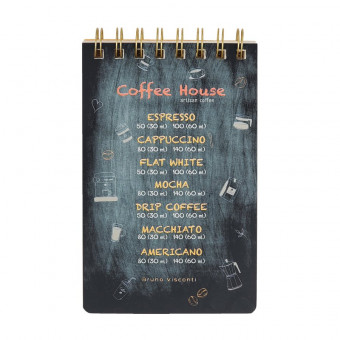 Coffee House
artisan coffee
ESPRESSO
50 (30 ml) 100 (60 ml)
CAPPUCCINO
80 (30 ml) 140 (60 ml)
FLAT WHITE
50 (30 ml) 100 (60 ml)
MOCHA
80 (30 ml) 140 (60 ml)
DRIP COFFEE
50 (30 ml) 100 (60 ml)
MACCHIATO
80 (30 ml) 140 (60 ml)
AMERICANO
80 (30 ml) 140 (60 ml)
bruno visconti